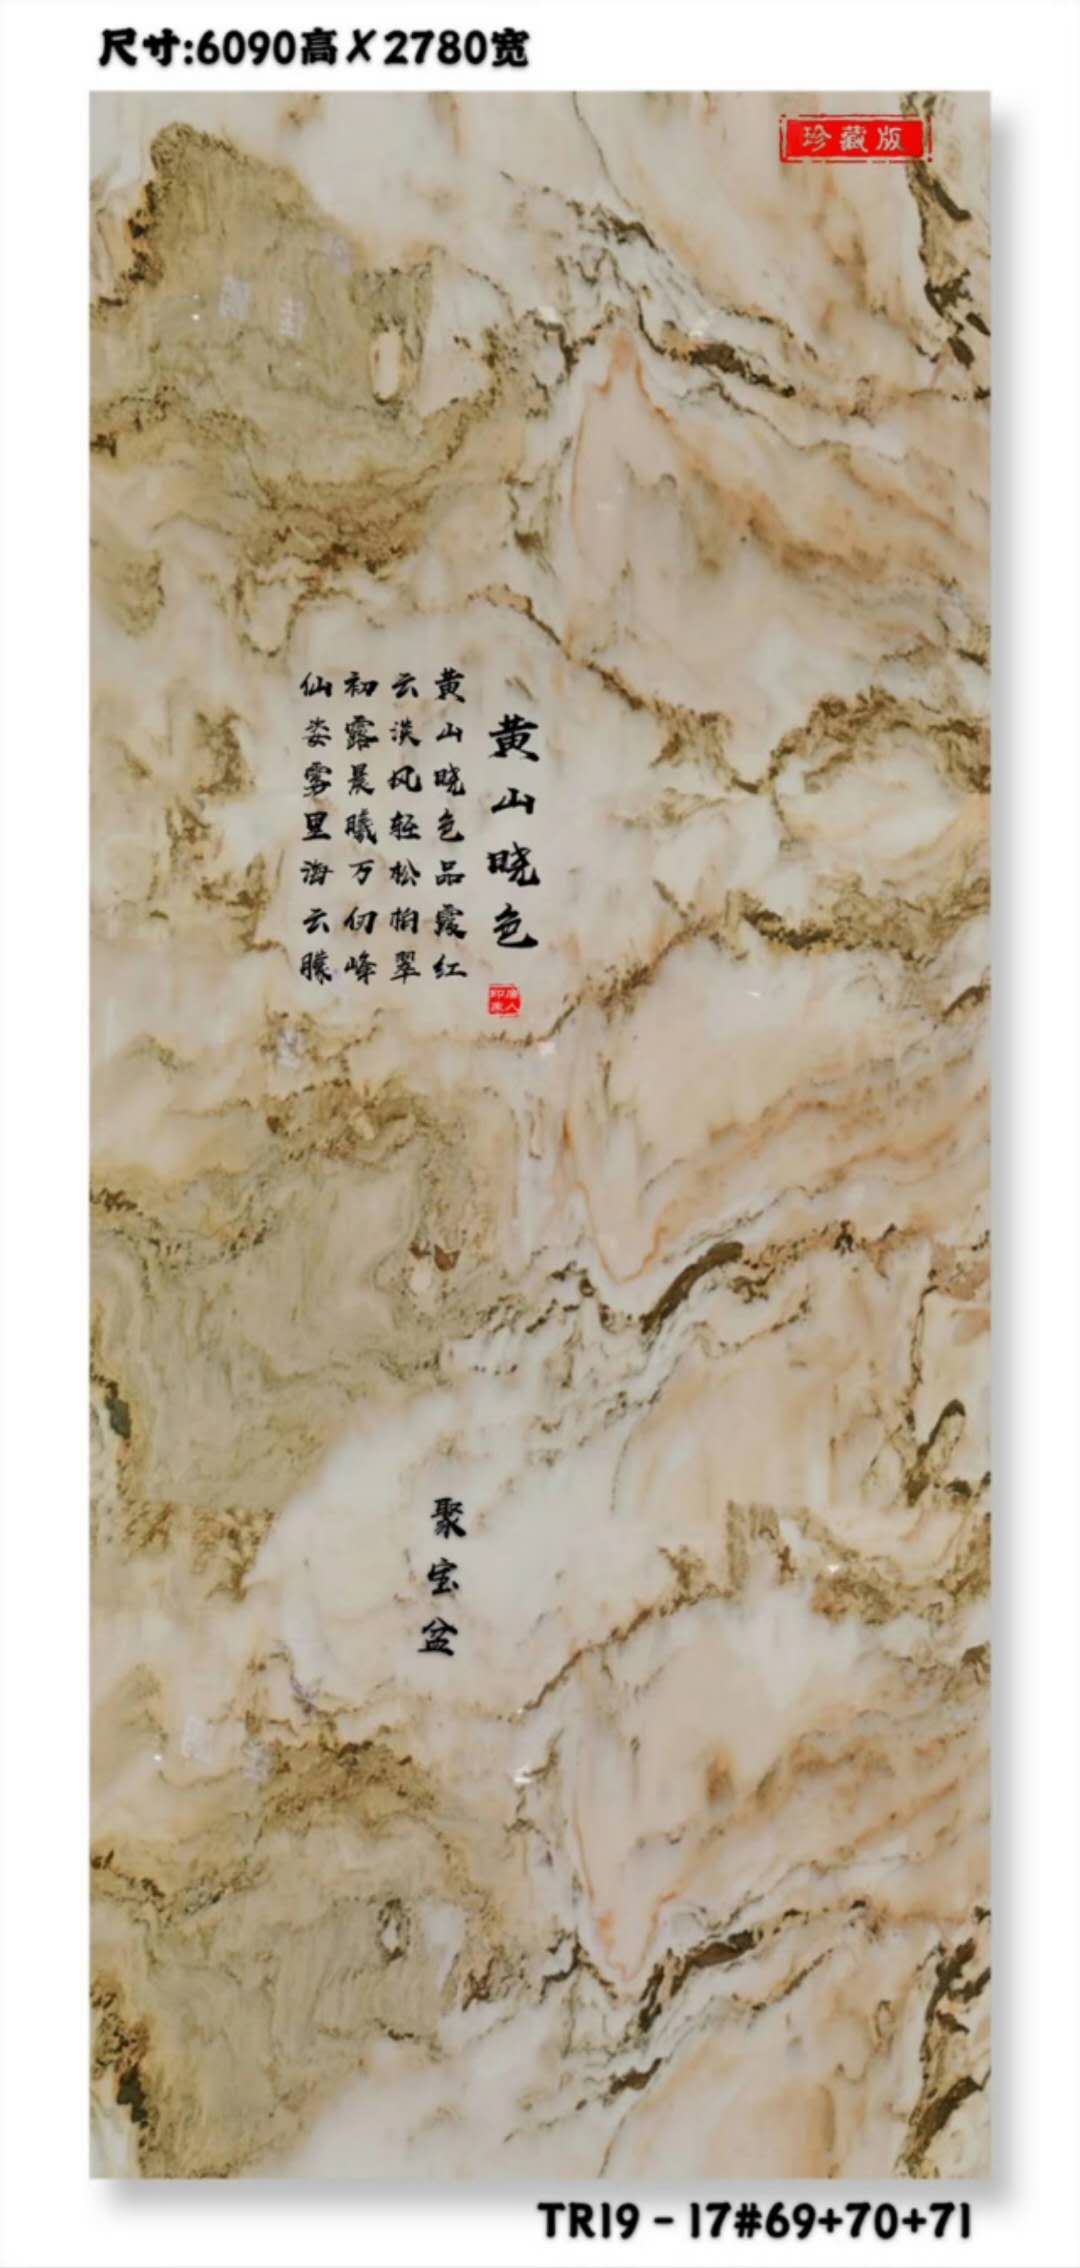 尺寸:6090高X2780宽
珍藏版
黄山晓色
黄山晓色品霞红
云淡风轻松柏翠
初露晨曦万仞峰
仙姿雾里海云朦
聚宝盆
TR19-17#69+70+71